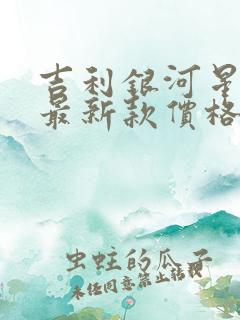 吉利銀河星
最新款價格
虫蛀的瓜子
未经同意禁止转载